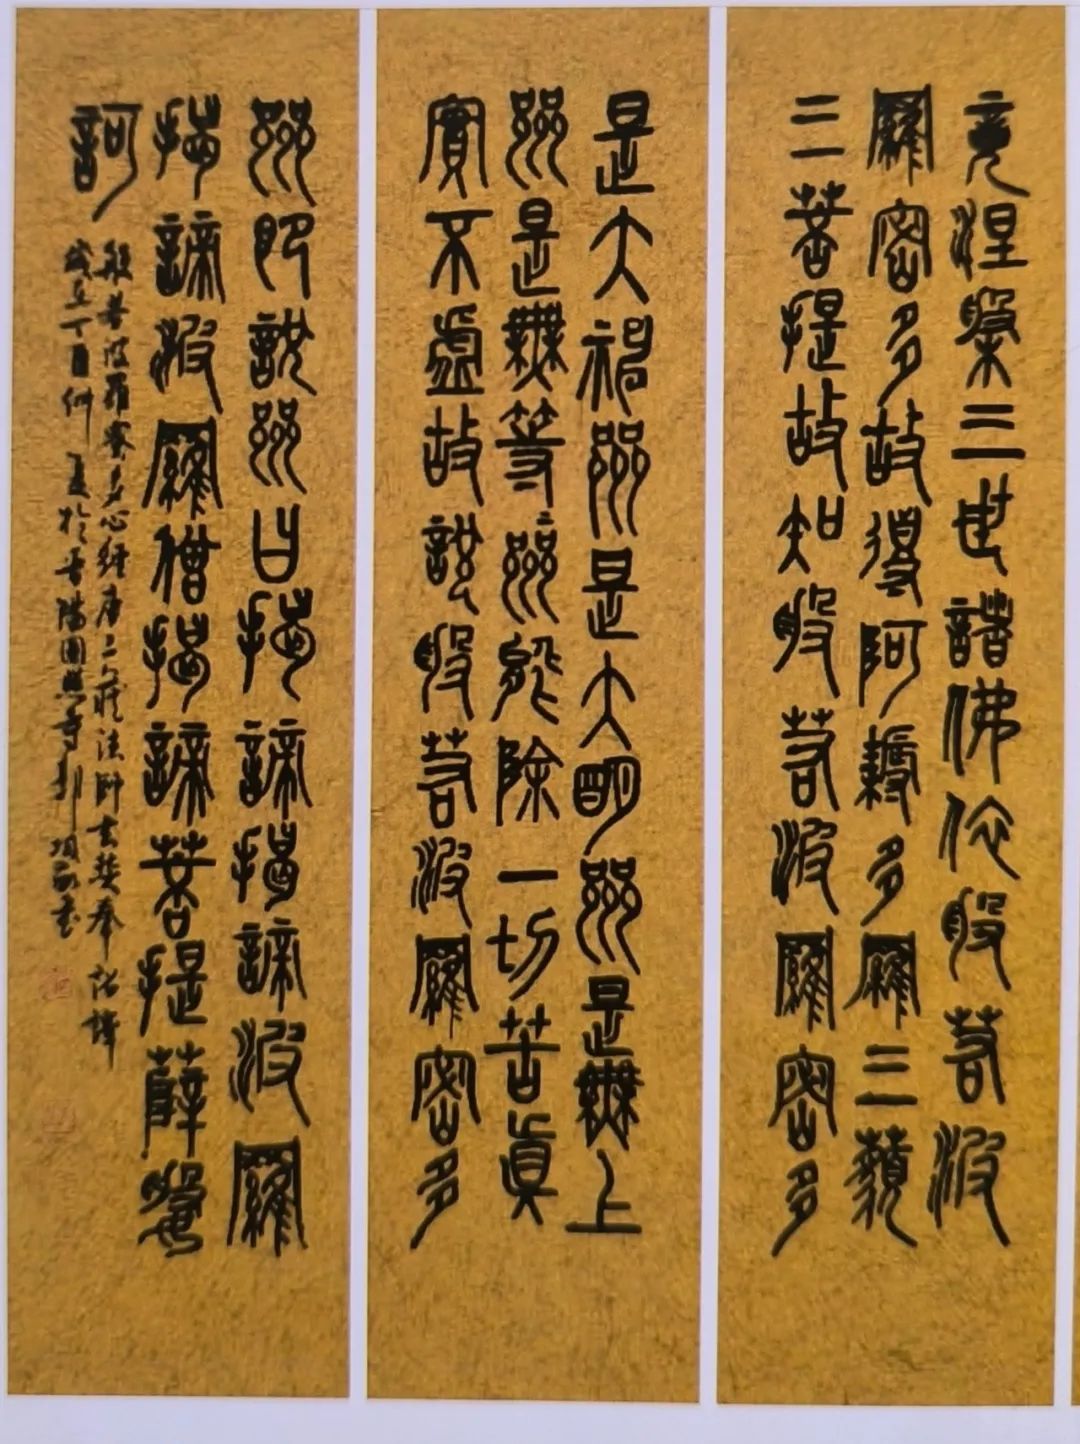 竟涅槃三世諸佛依般若波
羅密多故得阿耨多羅三藐
三菩提故知般若波羅密多
是大神咒是大明咒是無上
咒是無等〻咒能除一切苦真
實不虛故說般若波羅密多
咒即說咒曰揭諦揭諦波羅
揭諦波羅僧揭諦菩提薩婆
訶
般若波羅蜜多心經唐三藏法師玄奘奉詔譯
歲在丁酉仲夏於晉陽圓照寺郭書